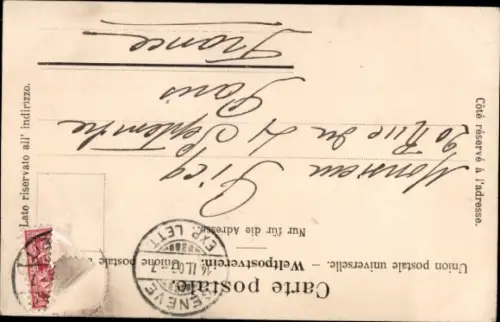 Carte postale.
Union postale universelle. — Weltpostverein. — Unione postale
Nur für die Adresse.
Côté réservé à l'adresse.
Lato riservato all' indirizzo.
GENÈVE
EXP. LETT.
Monsieur
20 Rue du 4 Septembre
Paris
France